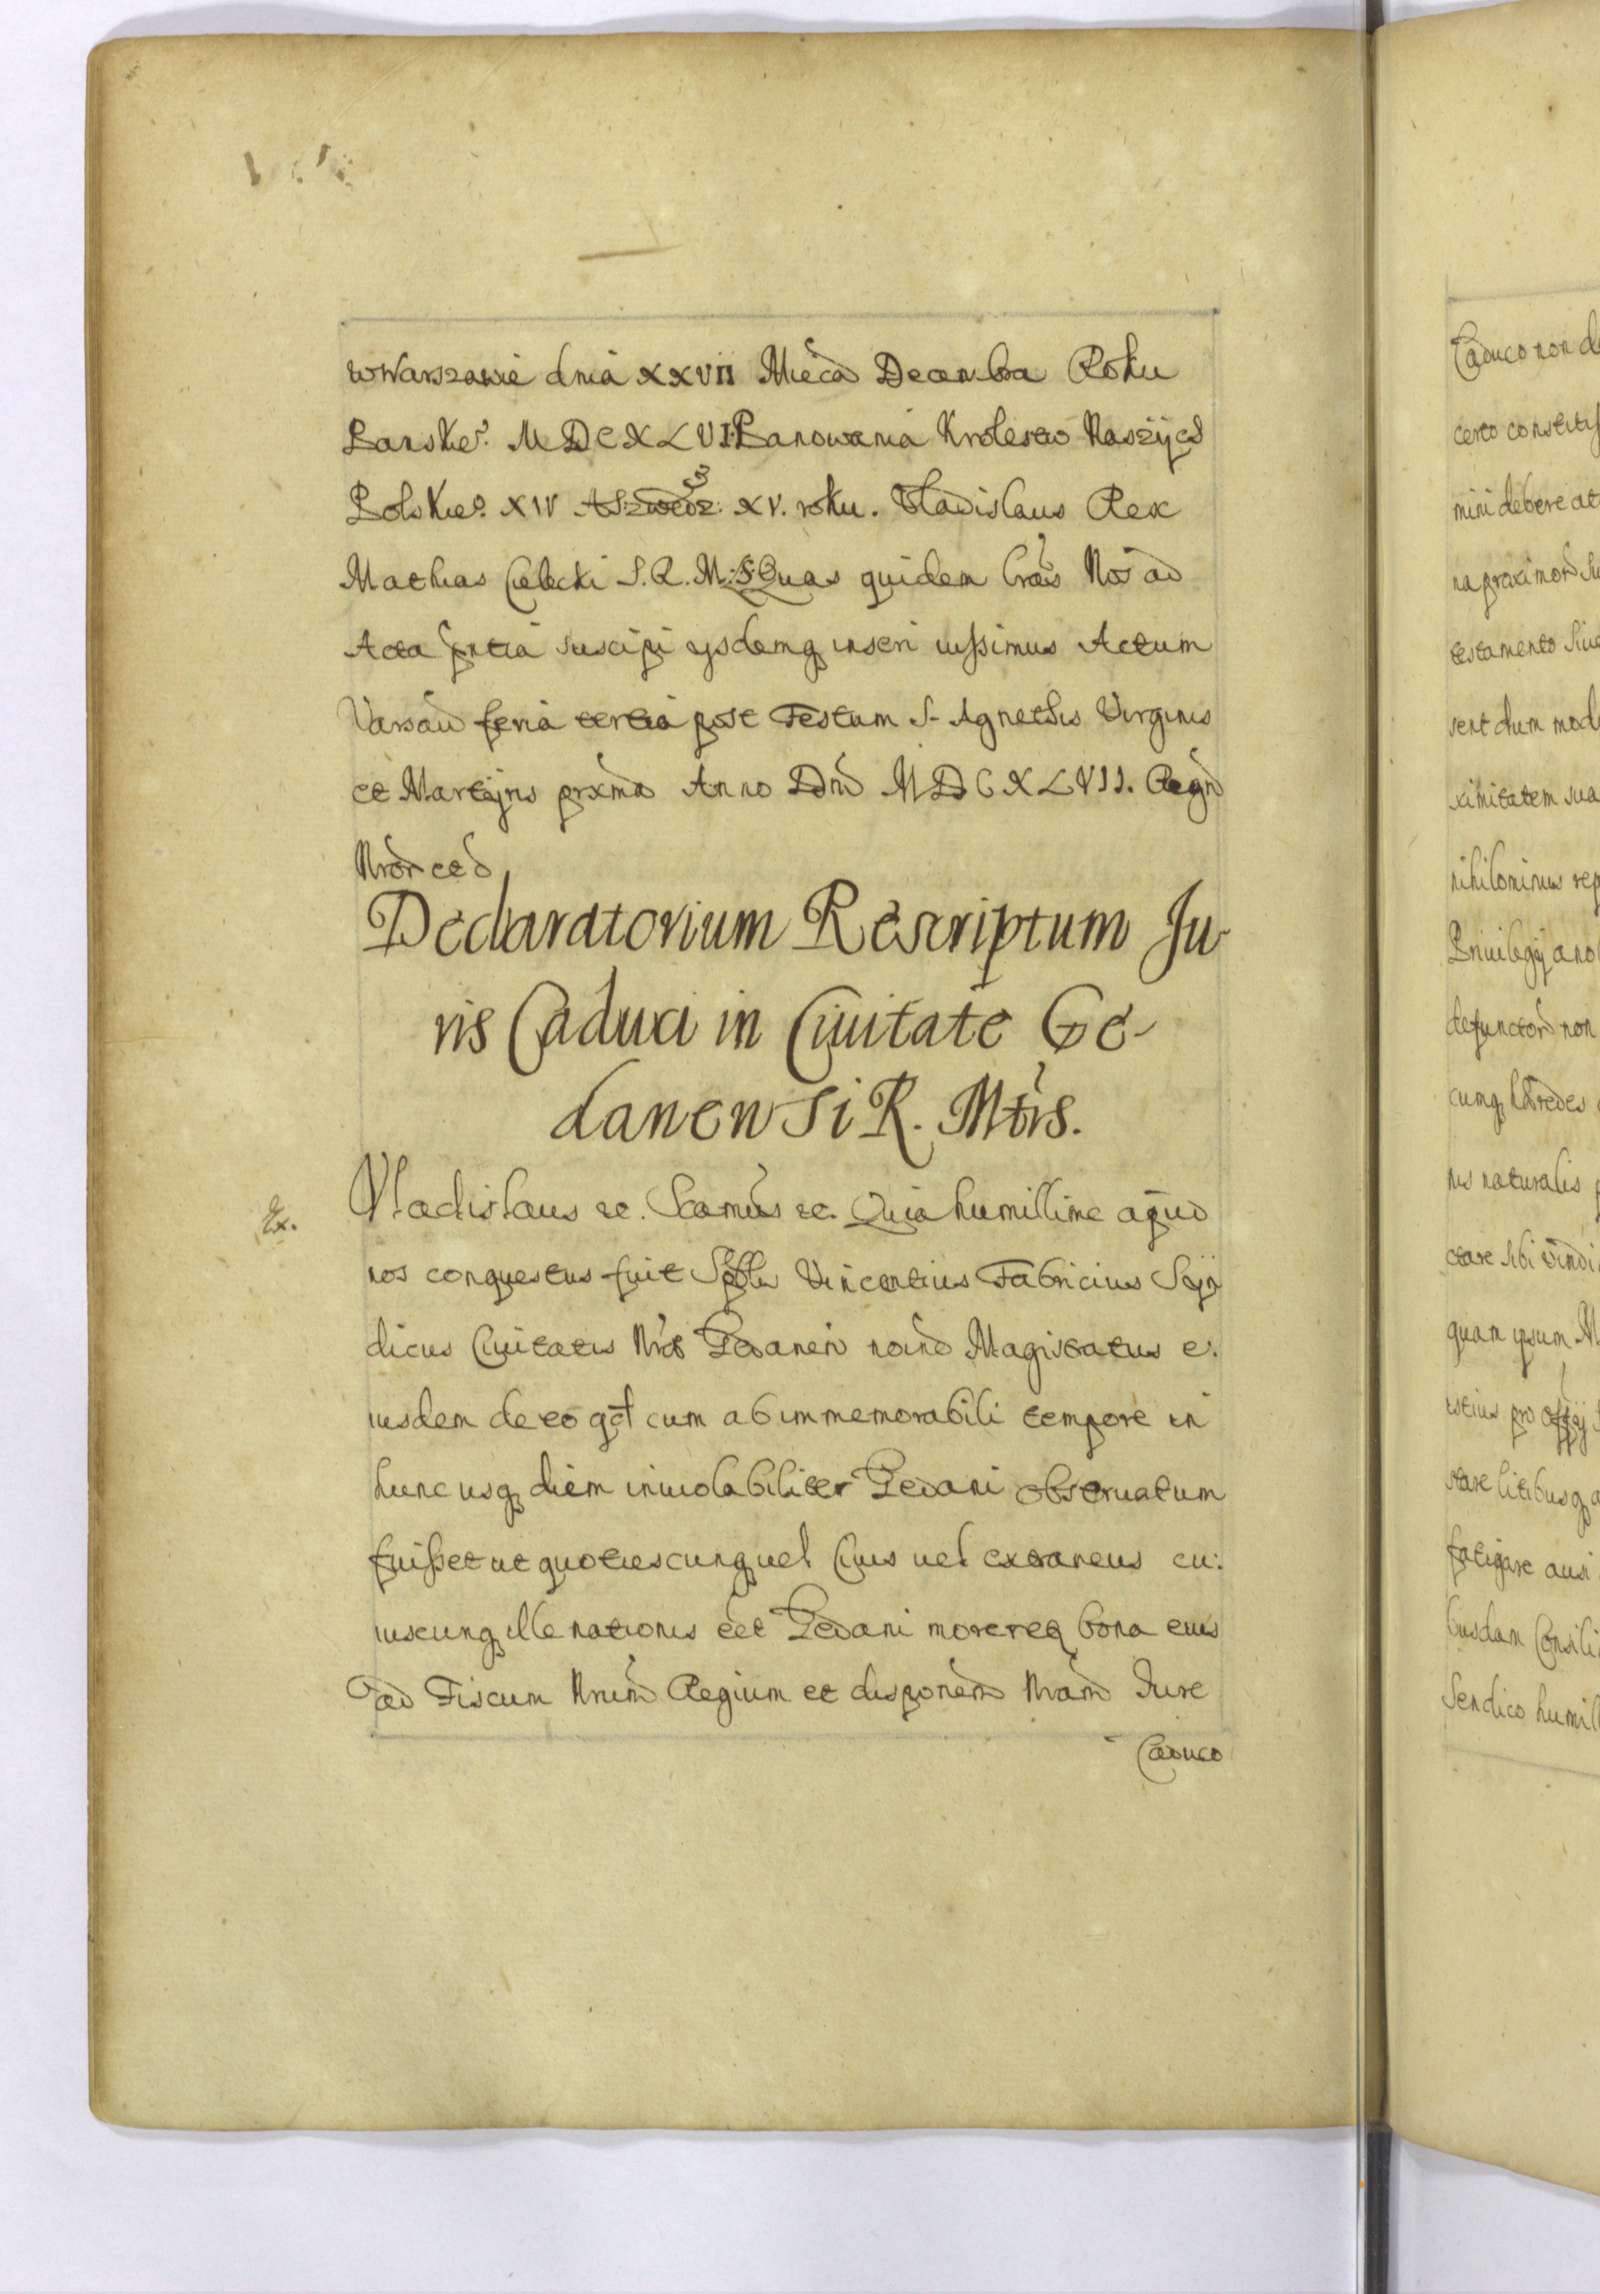 wWarszawie dnia XXVII Mieca Decembra Roku
Panskieo. MDCXLVI Panowania Krolestw Naszych
Polskieo. XIV A Szwedz: XV. roku. Vladislaus Rex
Mathias Cielecki S. R. M: S: Quas quidem Lras Nos ad
Acta pntia suscipi ijsdemq inseri iussimus Actum
Varsav feria tertia post Festum S. Agnethis Virginis
et Martyris prxma Anno Dni MDCXLVII. Regn
Nror etc
Declaratorium Rescriptum Ju-
ris Caduci in Ciuitate Ge-
danensi R. Mtis.
Ex.
Vladislaus etc. Scamus etc. Quia humillime apud
nos conquestus fuit Sptblis Vincentius Fabricius Syn
dicus Ciuitatis Nrae Gedanen noind Magistratus e:
iusdem de eo qd cum ab immemorabili tempore in
hunc usq diem inuiolabiliter Gedani obseruatum
fuisset ut quotiescunq uel Ciuis uel extraneus cu:
iuscunq ille nationis eet Gedani moreretq bona eius
ad Fiscum Nrum Regium et disponem Nram Jure
Caduco
Caduco non d
certo constitu
mini debere at
na proximor su
testamento siue
sent dum mod
ximitatem sua
nihilominus rep
Priuilegij a no
defunctor non
cumq haeredes
ris naturalis
ctare sibi vindi
quam ipsum M
istius pro offij
stare litibusq a
fatigare ausi
busdam Consili
Sendico humil